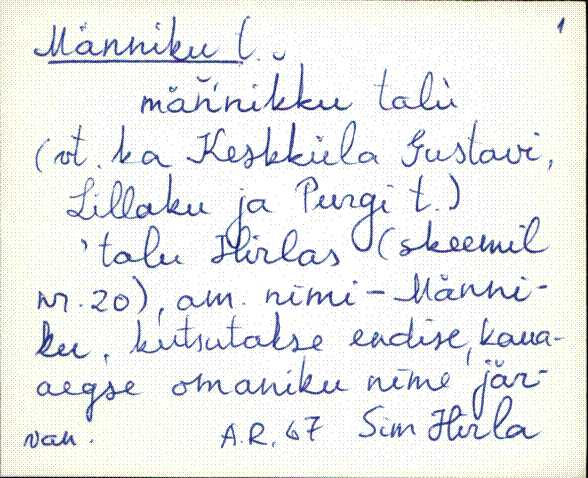 1
Männiku t.
mäńnikku talù
(vt. ka Keskküla Gustavi,
Lillaku ja Purgi t.)
'talu Hirlas (skeemil
nr. 20), am. nimi - Männi-
ku, kutsutakse endise, kaua-
aegse omaniku nime jär-
van. A.R. 67 Sim Hirla